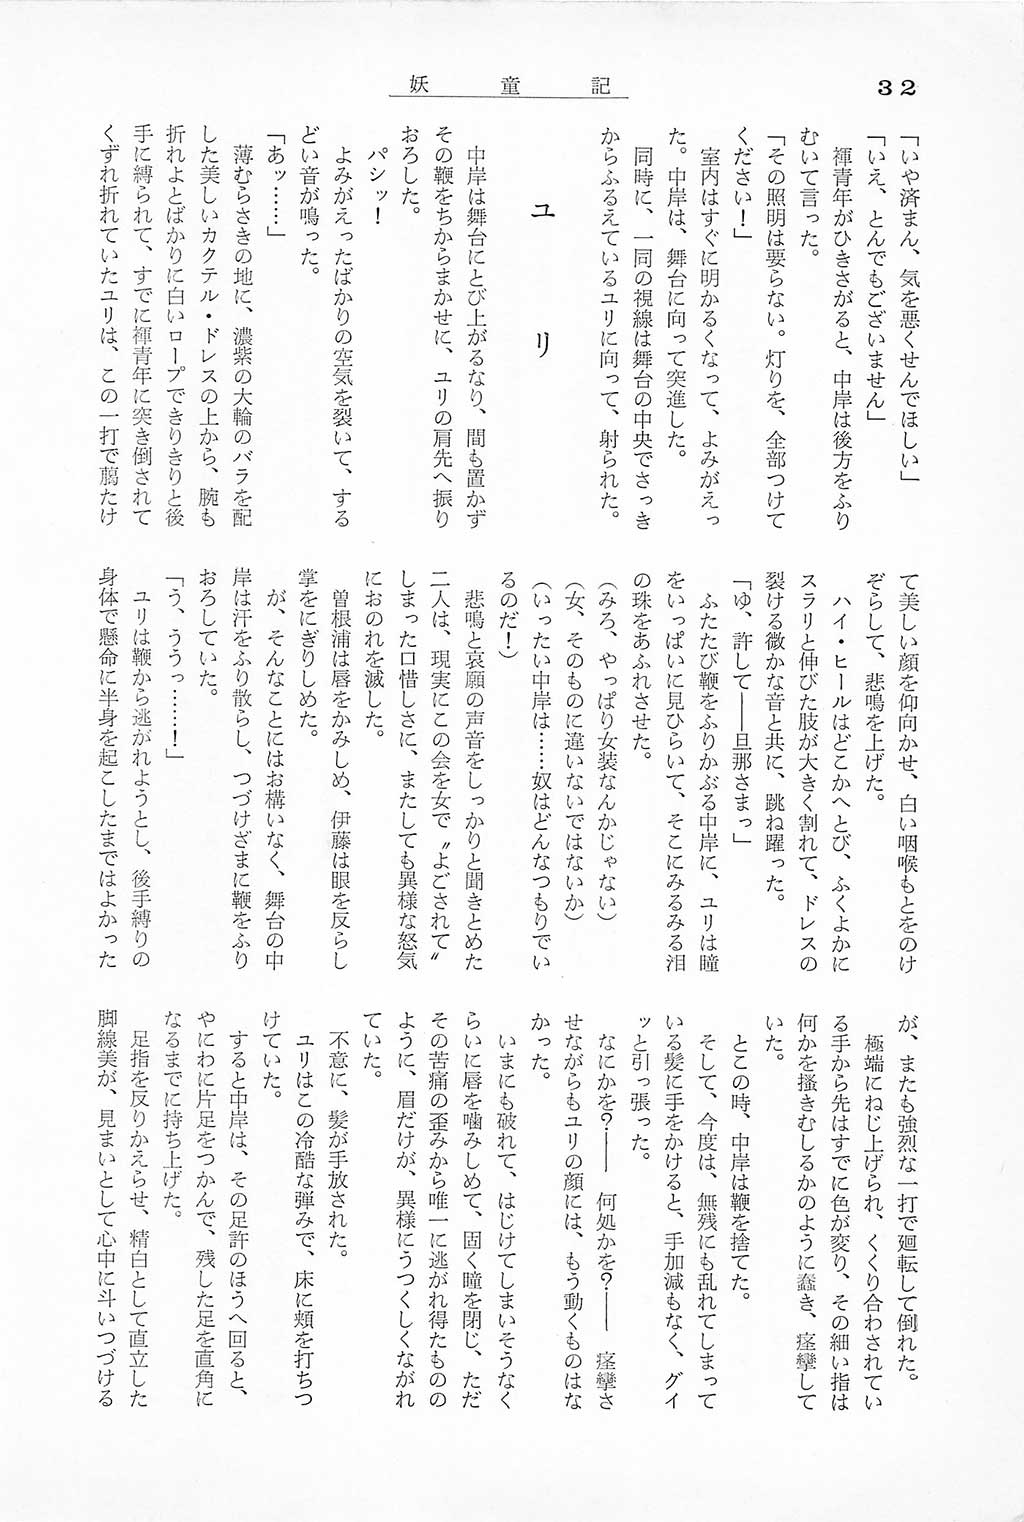 32
妖童記
「いや済まん、気を悪くせんでほしい」
「いえ、とんでもございません」
褌青年がひきさがると、中岸は後方をふり
むいて言った。
「その照明は要らない。灯りを、全部つけて
ください！」
室内はすぐに明かるくなって、よみがえっ
た。中岸は、舞台に向って突進した。
同時に、一同の視線は舞台の中央でさっき
からふるえているユリに向って、射られた。
ユリ
中岸は舞台にとび上がるなり、間も置かず
その鞭をちからまかせに、ユリの肩先へ振り
おろした。
パシッ！
よみがえったばかりの空気を裂いて、する
どい音が鳴った。
「あッ……」
薄むらさきの地に、濃紫の大輪のバラを配
した美しいカクテル・ドレスの上から、腕も
折れよとばかりに白いロープできりきりと後
手に縛られて、すでに褌青年に突き倒されて
くずれ折れていたユリは、この一打で﨟たけ
て美しい顔を仰向かせ、白い咽喉もとをのけ
ぞらして、悲鳴を上げた。
ハイ・ヒールはどこかへとび、ふくよかに
スラリと伸びた肢が大きく割れて、ドレスの
裂ける微かな音と共に、跳ね躍った。
「ゆ、許して――旦那さまっ」
ふたたび鞭をふりかぶる中岸に、ユリは瞳
をいっぱいに見ひらいて、そこにみるみる泪
の珠をあふれさせた。
（みろ、やっぱり女装なんかじゃない）
（女、そのものに違いないではないか）
（いったい中岸は……奴はどんなつもりでい
るのだ！）
悲鳴と哀願の声音をしっかりと聞きとめた
二人は、現実にこの会を女で〝よごされて〟
しまった口惜しさに、またしても異様な怒気
におのれを滅した。
曽根浦は唇をかみしめ、伊藤は眼を反らし
掌をにぎりしめた。
が、そんなことにはお構いなく、舞台の中
岸は汗をふり散らし、つづけざまに鞭をふり
おろしていた。
「う、ううっ……！」
ユリは鞭から逃がれようとし、後手縛りの
身体で懸命に半身を起こしたまではよかった
が、またも強烈な一打で廻転して倒れた。
極端にねじ上げられ、くくり合わされてい
る手から先はすでに色が変り、その細い指は
何かを掻きむしるかのように蠢き、痙攣して
いた。
とこの時、中岸は鞭を捨てた。
そして、今度は、無残にも乱れてしまって
いる髪に手をかけると、手加減もなく、グイ
ッと引っ張った。
なにかを？――　何処かを？――　痙攣さ
せながらもユリの顔には、もう動くものはな
かった。
いまにも破れて、はじけてしまいそうなく
らいに唇を噛みしめて、固く瞳を閉じ、ただ
その苦痛の歪みから唯一に逃がれ得たものの
ように、眉だけが、異様にうつくしくながれ
ていた。
不意に、髪が手放された。
ユリはこの冷酷な弾みで、床に頬を打ちつ
けていた。
すると中岸は、その足許のほうへ回ると、
やにわに片足をつかんで、残した足を直角に
なるまでに持ち上げた。
足指を反りかえらせ、精白として直立した
脚線美が、見まいとして心中に斗いつづける